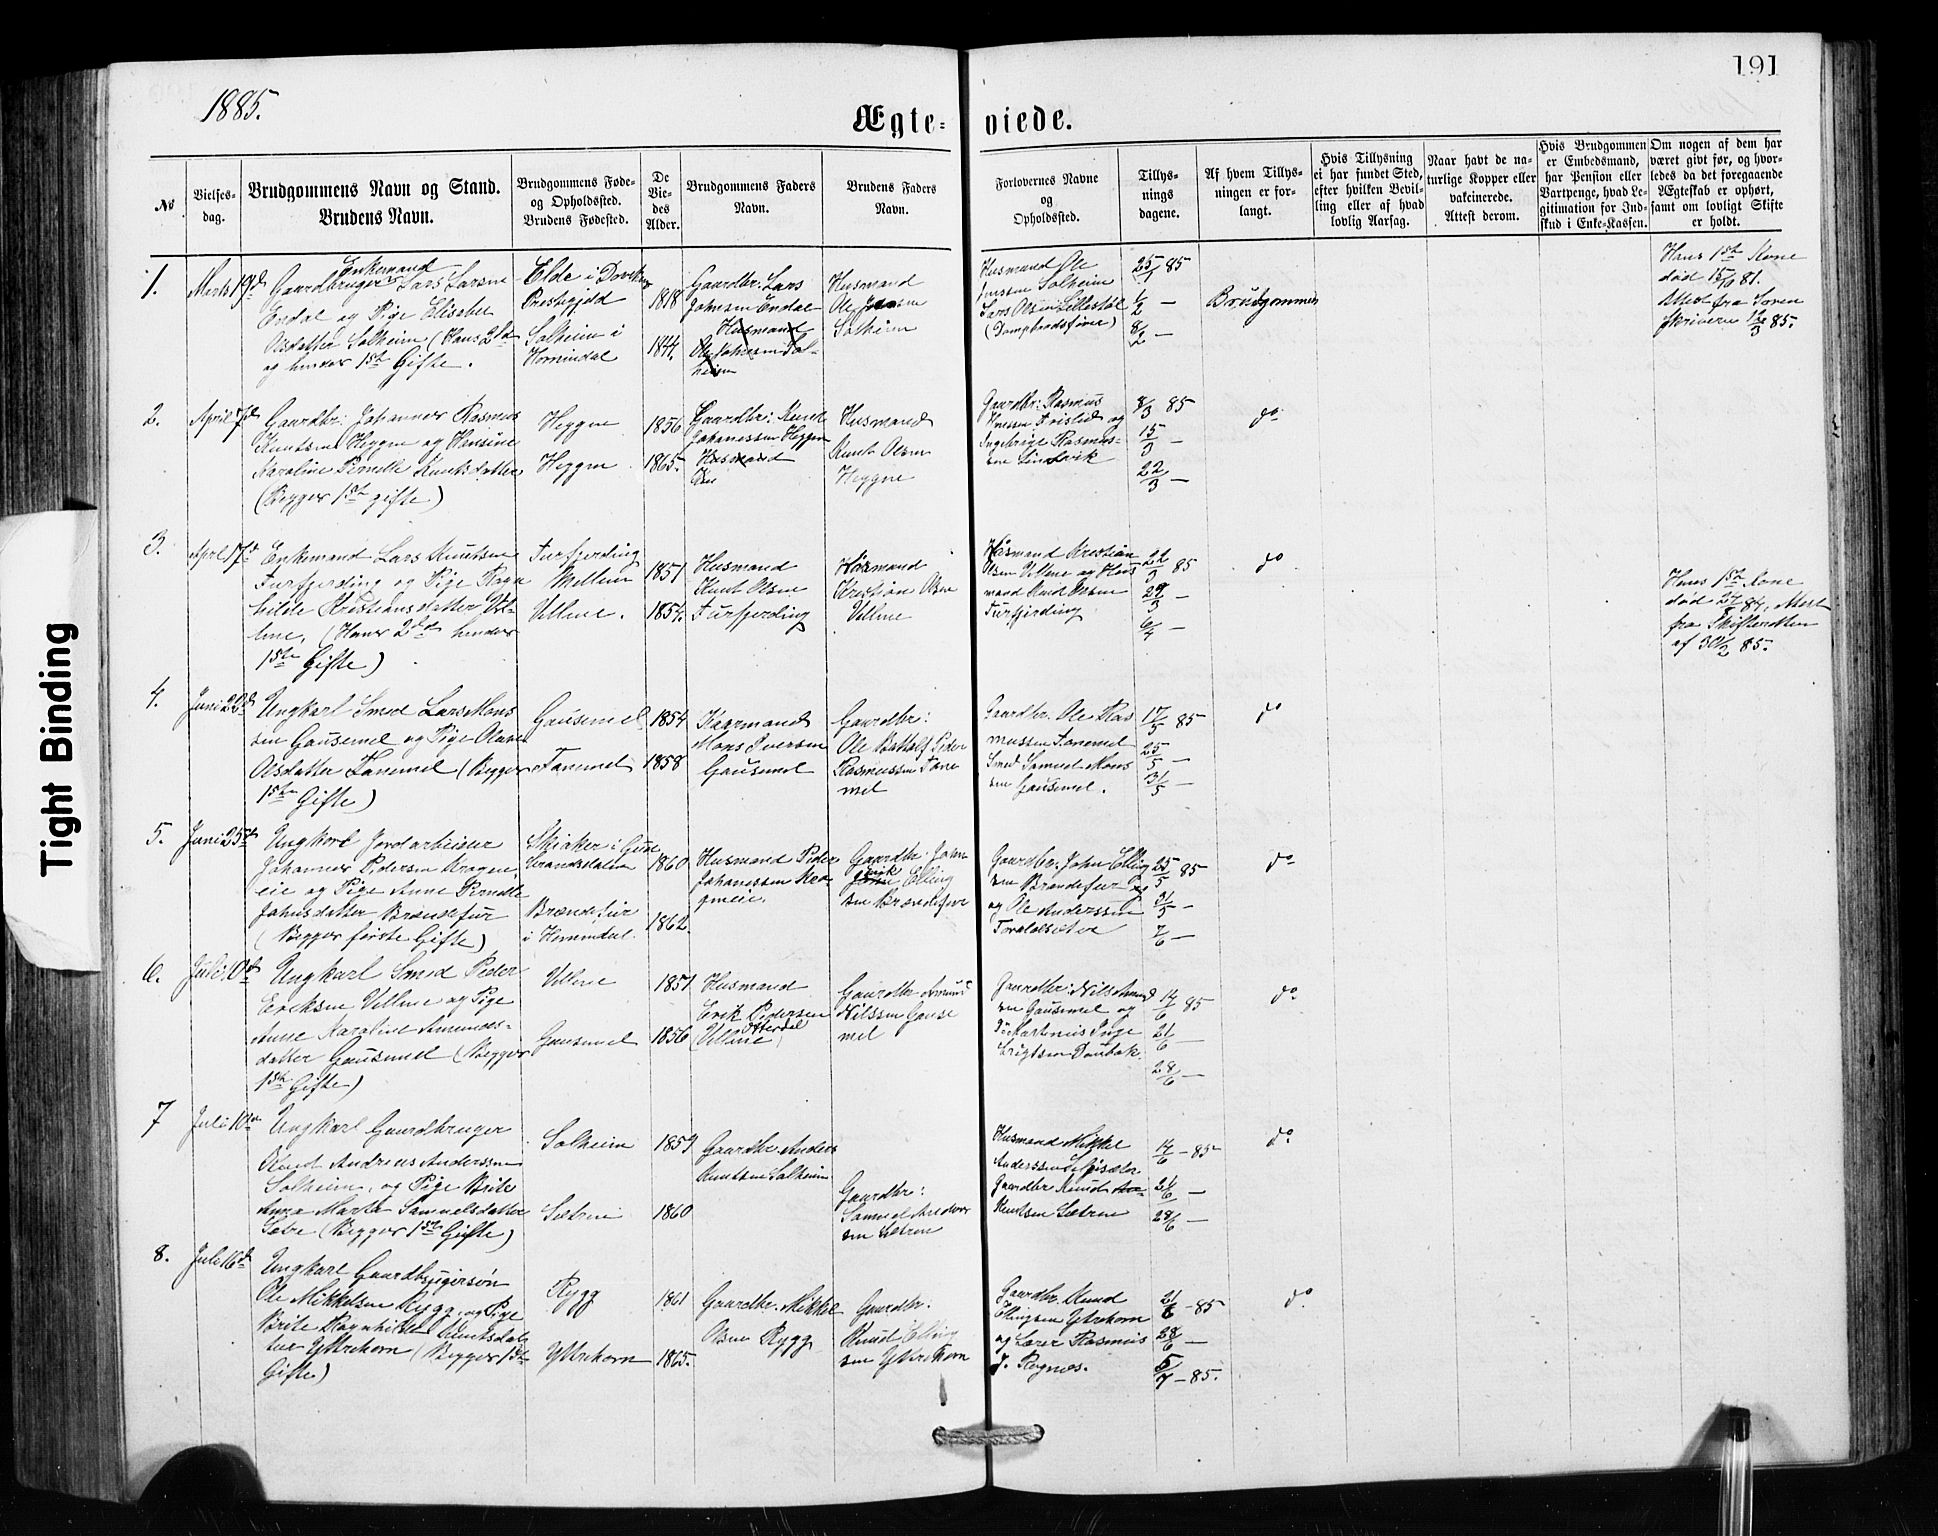 191
1885.
Ægte- viede.
No
Vielses-
dag.
Brudgommens Navn og Stand.
Brudens Navn.
Brudgommens Føde-
og Opholdssted.
Brudens Fødested.
De
Vie-
des
Alder.
Brudgommens Faders
Navn.
Brudens Faders
Navn.
Forlovernes Navne
og
Opholdssted.
Tillys-
nings
dagene.
Af hvem Tillys-
ningen er for-
langt.
Hvis Tillysning
ei har fundet Sted,
efter hvilken Bevil-
ling eller af hvad
lovlig Aarsag.
Naar havt de na-
turlige Kopper eller
vakcinerede.
Attest derom.
Hvis Brudgommen
er Embedsmand,
har Pension eller
Vartpenge, hvad Le-
gitimation for Ind-
skud i Enke-Kassen.
Om nogen af dem har
været givt før, og hvor-
ledes da det foregaaende
Ægteskab er ophørt,
samt om lovligt Skifte
er holdt.
1.
Marts 19de
Enkemand
Gaardbruger Lars Larsen
Endal og Pige Elisabet
Olsdatter Solheim (Hans 2det
og hendes 1ste Gifte.
Præstegjeld
Solheim i
Hornindal
1818
1844.
Gaardbr: Lars
Johnsen Endal
Husmand
Husmand
Solheim
Husmand Ole
Jensen Solheim
Lars Olsen Lillestøl
25/1 85
1/2 —
8/2 —
Brudgommen
Hans 1ste Kone
død 15/6 81.
Attest fra Soren
skriveren 12/3 85.
2.
April 7de
Gaardbr: Johannes Rasmus
Knutsen Heggen og Hansine
Karoline Pernille Knutsdatter
(Begges 1ste gifte)
Heggen
Heggen
1856
1865.
Gaardbr: Knut
Johanessen Heggen
Husmand
Husmand
Knut Olsen
Heggne
Gaardbr: Rasmus
Knutsen Frislid og
Ingebrigt Rasmus-
sen Lindvik
8/3 85
15/3 —
22/3 —
do
3.
April 17de
Enkemand Lars Knutsen
Furfjerding og Pige Ragn
hilde Kristiansdatter Vil-
lme, (Hans 2det hendes
1ste Gifte)
Furfjerding
Mellem
Villme.
1851
1854.
Husmand
Knut Olsen
Furfjerding
Husmand
Kristian Olsen
Villme
Husmand Kristian
Olsen Villme og Hus
mand Knut Olsen
Furfjerding
22/3 85
29/3 —
6/4 —
do
Hans 1ste Kone
fra Skifteretten
4.
Juni 22de
Ungkarl Smed Lars Mons
sen Gausemel og Pige Oline
Olsdatter Tanemel (Begges
1ste Gifte)
Gausemel
Tanemel
1854
1858
Kaarmand
Mons Iversen
Gausemel
Gaardbr:
Rasmussen Tane
mel
Gaardbr. Ole Ras
mussen Tanemel
Smed Samuel Mons
sen Gausemel.
17/5 85
25/5 —
31/5 —
do
5.
Juni 25de
Ungkarl Jordarbeider
Johannes Pedersen Kragne
eie og Pige Anne Pernille
Johnsdatter Brændefur
(Begges første Gifte)
Brændefur
i Hornindal.
1860
1862.
Husmand Peder
Johanessen Kra-
gneeie.
Gaardbr. John
Elling
sen Brændefur
Gaardbr: John Elling
sen Brændefur
og Ole Anderssen
25/5 85
31/5 —
7/6 —
do
6.
Juli 10de
Ungkarl Smed Peder
Eriksen Villme og Pige
Anne Karoline Amunds-
datter Gausemel (Begges
1ste Gifte)
Villme
Gausemel
1851
1856
Husmand
Erik Pedersen
Otterdal
(Villme)
Gaardbr Amund
Nilssen Gause
mel
Gaardbr: Nils Amund
sen Gausemel og
14/6 85
21/6 —
28/6 —
do
7
Juli 10de
Ungkarl Gaardbruger
Knut Andreas Anderssen
Solheim, og Pige Brite
Anna Marta Samuelsdatter
Sætre (Begges 1ste Gifte)
Solheim
Sætren
1859
1860
Gaardbr. Anders
Knutsen Solheim
Gaardbr:
Samuel Anders
sen Sætren
Husmand Mikkel
Gaardbr Knud
Knutsen Sætren
14/6 — 85
21/6 —
28/6 —
do
8.
Juli 16de
Ungkarl Gaardbrugersøn
Ole Mikkelsen Rygg, og Pige
Brite Ragnhilde Knutsdat
ter Ytrehorn (Begges 1ste
Gifte)
Rygg
Ytrehorn
1861
1865.
Gaardbr. Mikkel
Olsen Rygg
Gaardbr:
Knud Elling
sen Ytrehorn
Gaardbr. Knud
Ellingsen Ytrehorn
og Lærer Rasmus
J. Rognes.
21/6 — 85
28/6 —
5/7 — 85.
do
Tight Binding